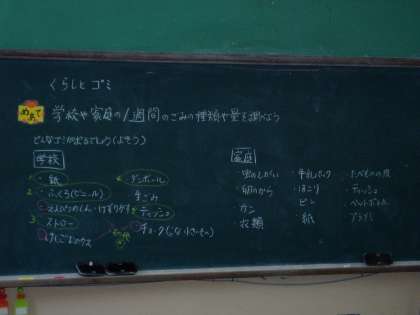 くらしと ゴミ
めあて 学校や家庭の1週間のごみの種類や量を調べよう
どんなゴミが出るでしょう(よそう)
学校
1 ・紙 ・ダンボール
2 ・ふくろ(ビニール) ・生ごみ
・えんぴつのしん・けずりカス ・ティッシュ
3 ・ストロー
・けしごむのカス ・チョーク
家庭
・牛乳パック ・たべものの皮
・卵のから ・ほこり ・ティッシュ
・カン ・ビン ・ペットボトル
・衣類 ・紙 ・プラゴミ